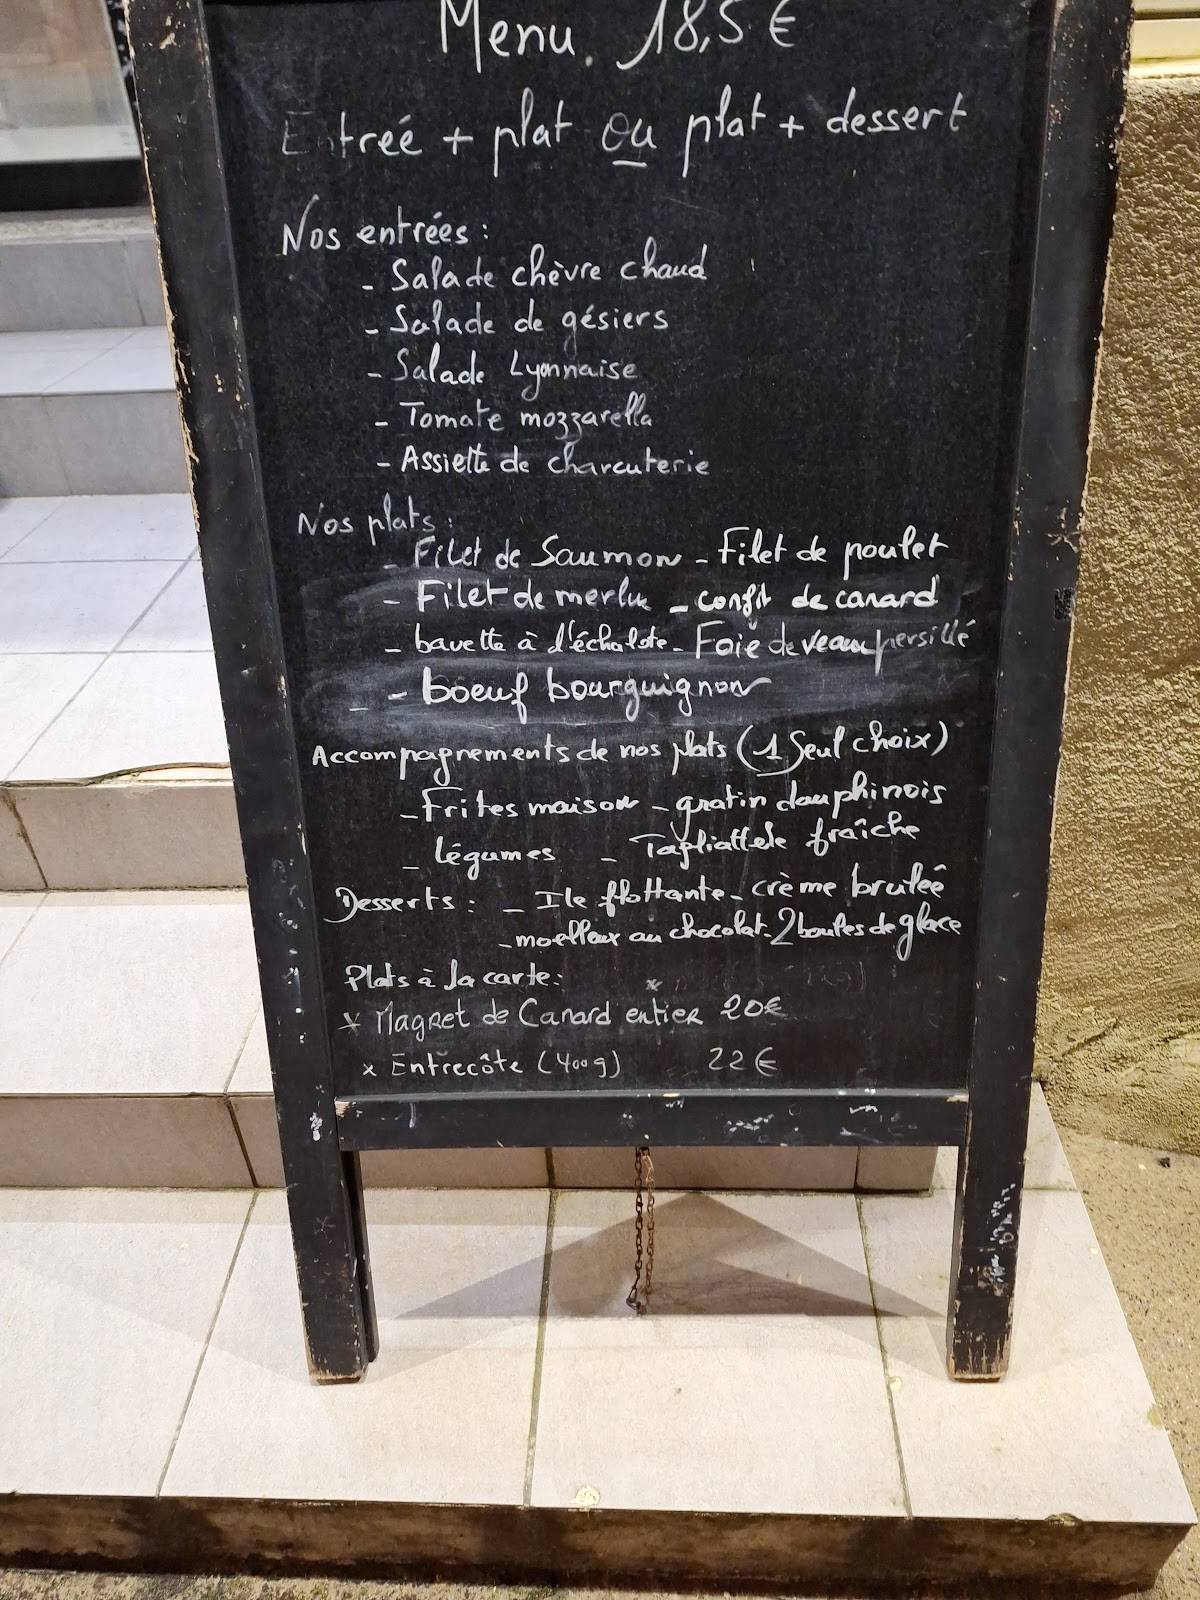 Menu. 18,5 €
Entreé + plat ou plat + dessert
Nos entrées :
- Salade chèvre chaud
- Salade de gésiers
- Salade Lyonnaise
- Tomate mozzarella
- Assiette de charcuterie
Nos plats :
- Filet de Saumon - Filet de poulet
- Filet de merlu - confit de canard
- bavette à l'échalote - Foie de veau persillé
- boeuf bourguignon
Accompagnements de nos plats (1 Seul choix)
- Frites maison - gratin dauphinois
- légumes - Tagliattele fraîche
Desserts : - Ile flottante - crème bruleê
- moelleux au chocolat - 2 boules de glace
Plats à la carte :
* Magret de Canard entier 20€
x Entrecôte (400g) 22€